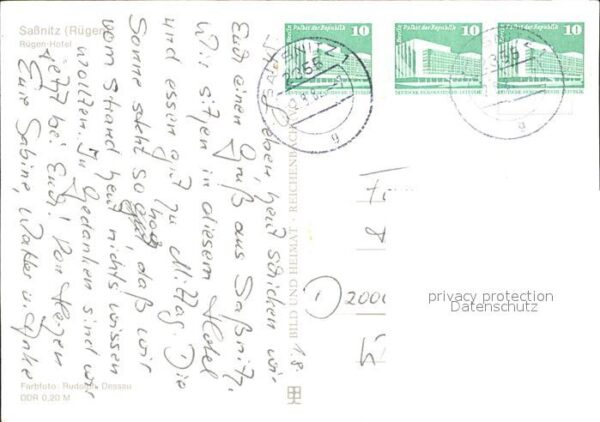 Saßnitz (Rügen)
Rügen-Hotel
Ihr Lieben, heut schicken wir
Euch einen Gruß aus Saßnitz.
Wir sitzen in diesem Hotel
und essen gut zu Mittag. Die
Sonne steht so hoch, daß wir
vom Strand heut nichts wissen
wollten. In Gedanken sind wir
jetzt bei Euch! Von Herzen
Eure Sabine, Walter u.
1.8.
Farbfoto: Rudolph, Dessau
DDR 0,20 M
BILD UND HEIMAT · REICHENBACH
SASSNITZ 1
2355
g
Berlin Palast der Republik 10
DEUTSCHE DEMOKRATISCHE REPUBLIK
Berlin Palast der Republik 10
DEUTSCHE DEMOKRATISCHE REPUBLIK
Berlin Palast der Republik 10
DEUTSCHE DEMOKRATISCHE REPUBLIK
2355
g
privacy protection
Datenschutz